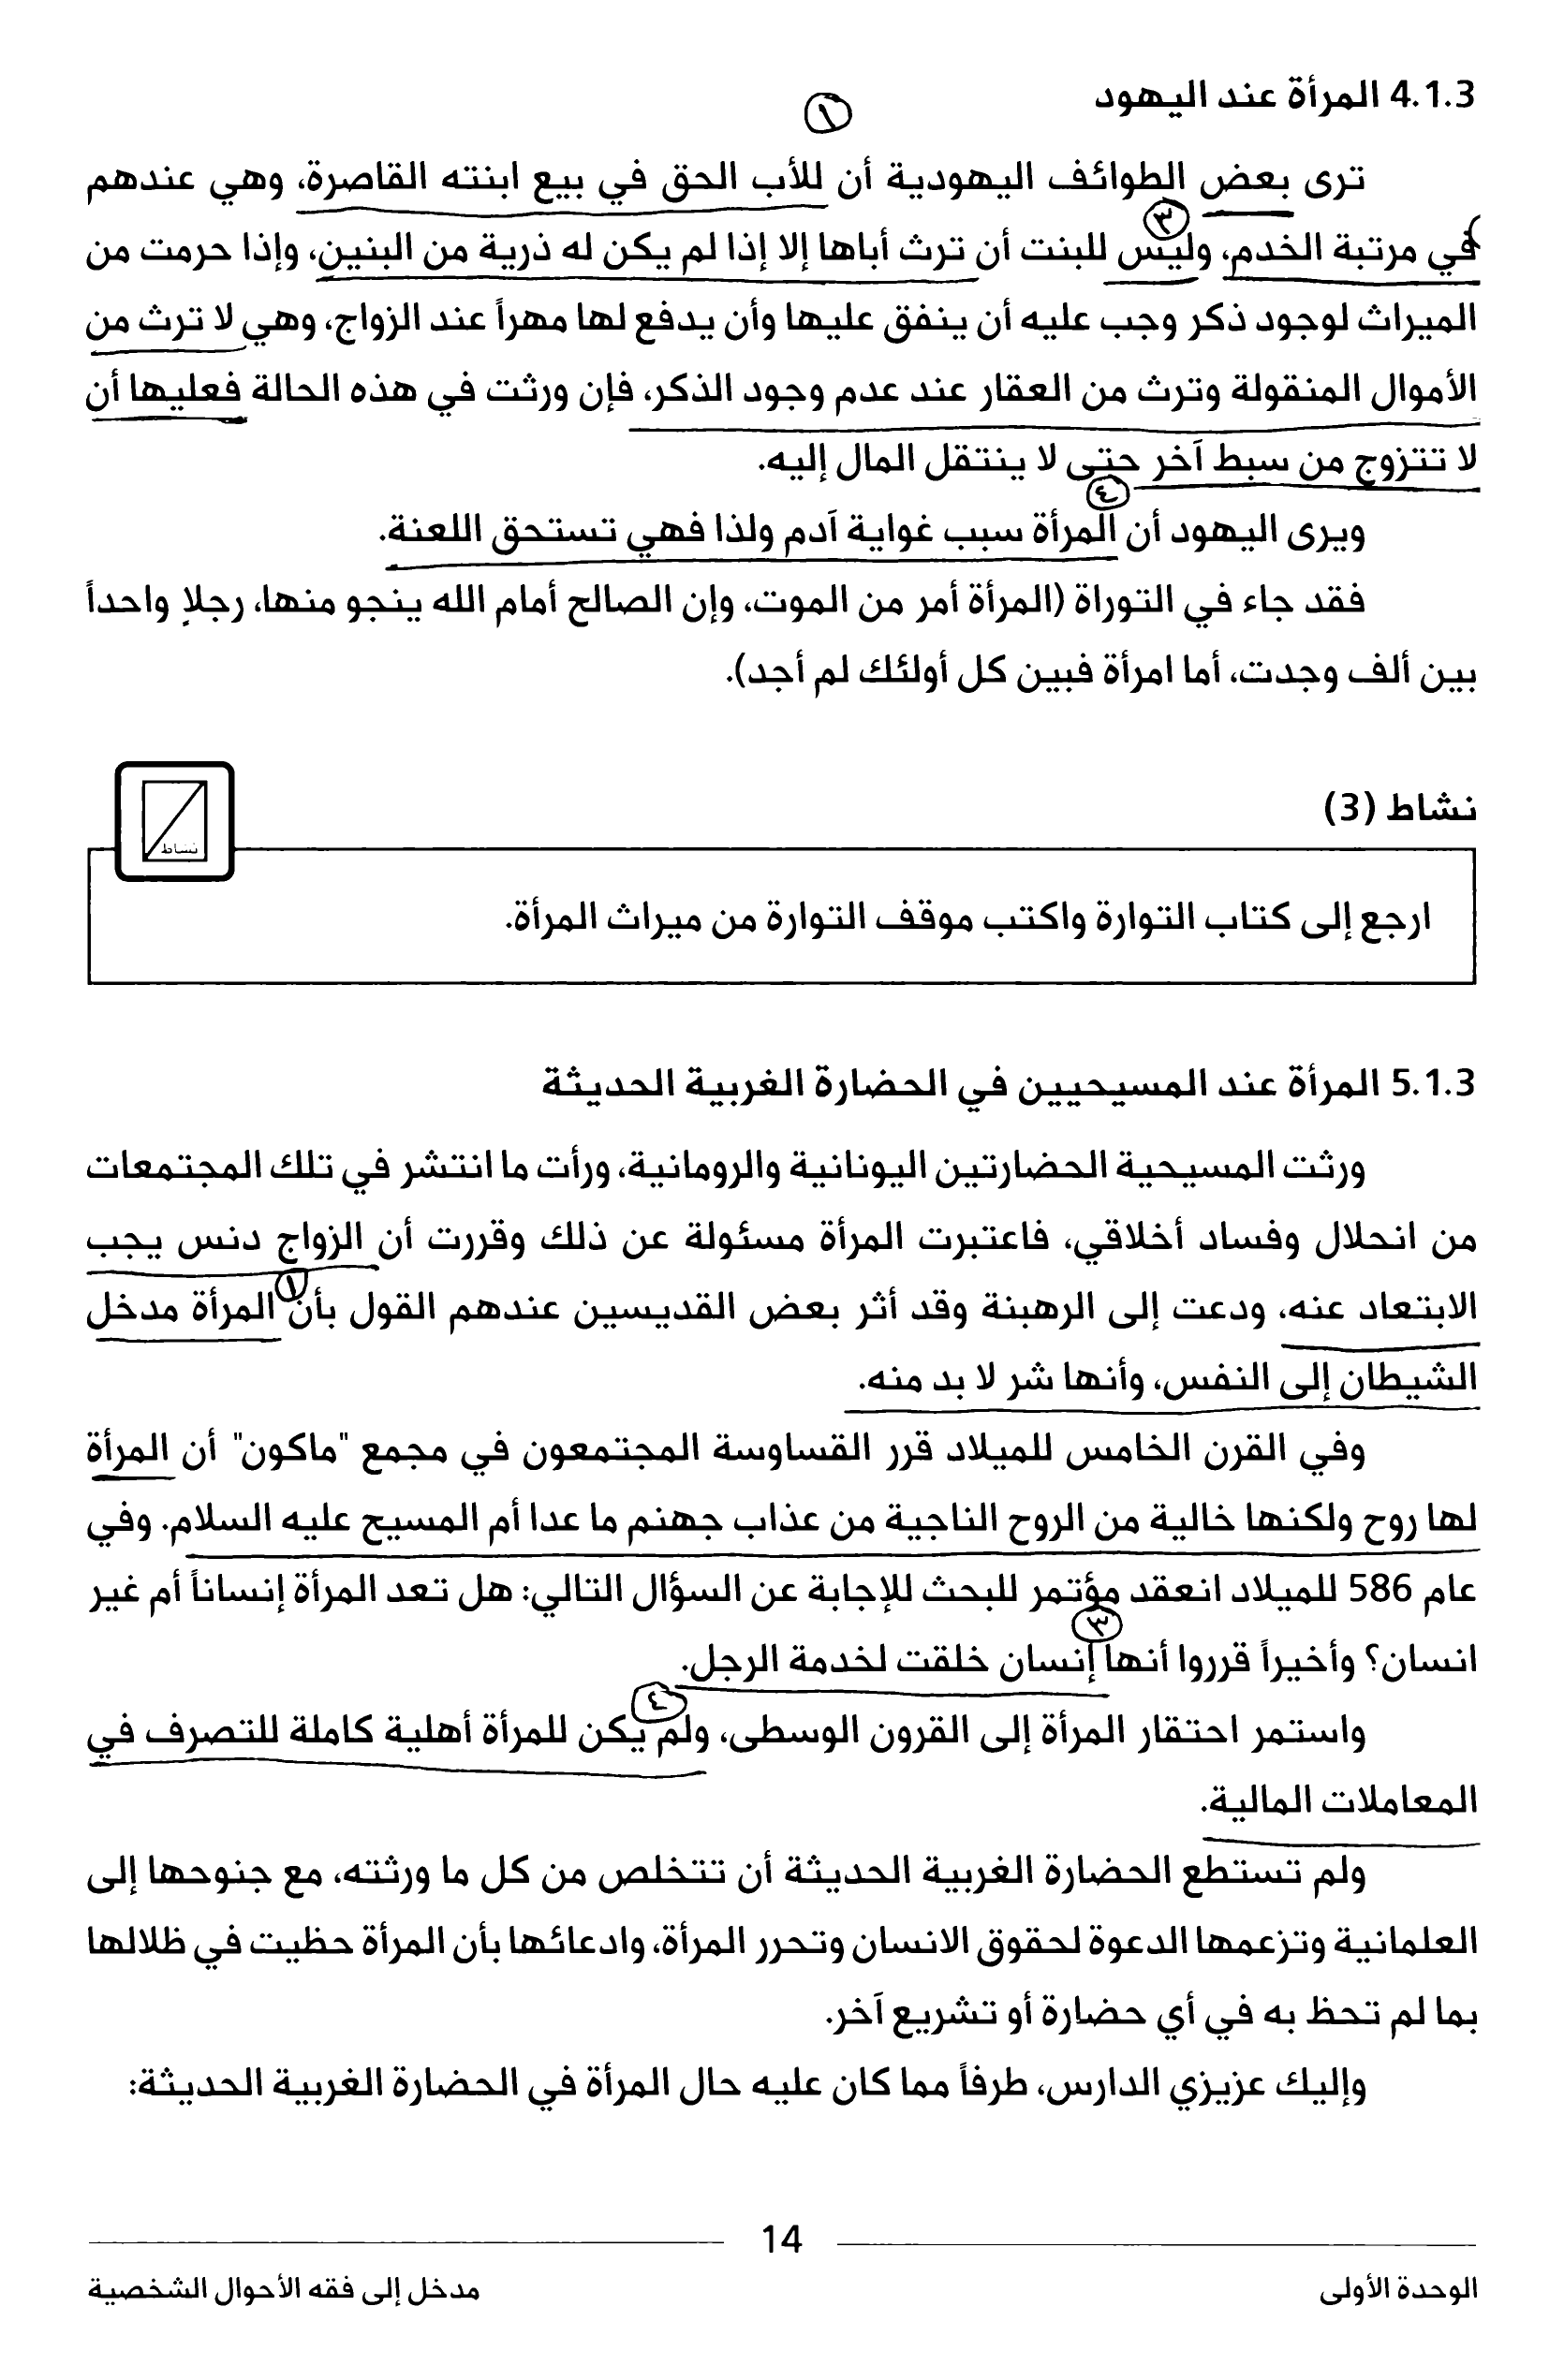 4.1.3 المرأة عند اليهود
١
ترى بعض الطوائف اليهودية أن للأب الحق في بيع ابنته القاصرة، وهي عندهم
٣
في مرتبة الخدم، وليس للبنت أن ترث أباها إلا إذا لم يكن له ذرية من البنين، وإذا حرمت من
الميراث لوجود ذكر وجب عليه أن ينفق عليها وأن يدفع لها مهراً عند الزواج، وهي لا ترث من
الأموال المنقولة وترث من العقار عند عدم وجود الذكر، فإن ورثت في هذه الحالة فعليها أن
لا تتزوج من سبط آخر حتى لا ينتقل المال إليه.
٤
ويرى اليهود أن المرأة سبب غواية آدم ولذا فهي تستحق اللعنة.
فقد جاء في التوراة (المرأة أمر من الموت، وإن الصالح أمام الله ينجو منها، رجلاٍ واحداً
بين ألف وجدت، أما امرأة فبين كل أولئك لم أجد).
نشاط (3)
نشاط
ارجع إلى كتاب التوارة واكتب موقف التوارة من ميراث المرأة.
5.1.3 المرأة عند المسيحيين في الحضارة الغربية الحديثة
ورثت المسيحية الحضارتين اليونانية والرومانية، ورأت ما انتشر في تلك المجتمعات
من انحلال وفساد أخلاقي، فاعتبرت المرأة مسئولة عن ذلك وقررت أن الزواج دنس يجب
١
الابتعاد عنه، ودعت إلى الرهبنة وقد أثر بعض القديسين عندهم القول بأن المرأة مدخل
الشيطان إلى النفس، وأنها شر لا بد منه.
وفي القرن الخامس للميلاد قرر القساوسة المجتمعون في مجمع "ماكون" أن المرأة
لها روح ولكنها خالية من الروح الناجية من عذاب جهنم ما عدا أم المسيح عليه السلام. وفي
عام 586 للميلاد انعقد مؤتمر للبحث للإجابة عن السؤال التالي: هل تعد المرأة إنساناً أم غير
٣
انسان؟ وأخيراً قرروا أنها إنسان خلقت لخدمة الرجل.
٤
واستمر احتقار المرأة إلى القرون الوسطى، ولم يكن للمرأة أهلية كاملة للتصرف في
المعاملات المالية.
ولم تستطع الحضارة الغربية الحديثة أن تتخلص من كل ما ورثته، مع جنوحها إلى
العلمانية وتزعمها الدعوة لحقوق الانسان وتحرر المرأة، وادعائها بأن المرأة حظيت في ظلالها
بما لم تحظ به في أي حضارة أو تشريع آخر.
وإليك عزيزي الدارس، طرفاً مما كان عليه حال المرأة في الحضارة الغربية الحديثة:
14
الوحدة الأولى
مدخل إلى فقه الأحوال الشخصية